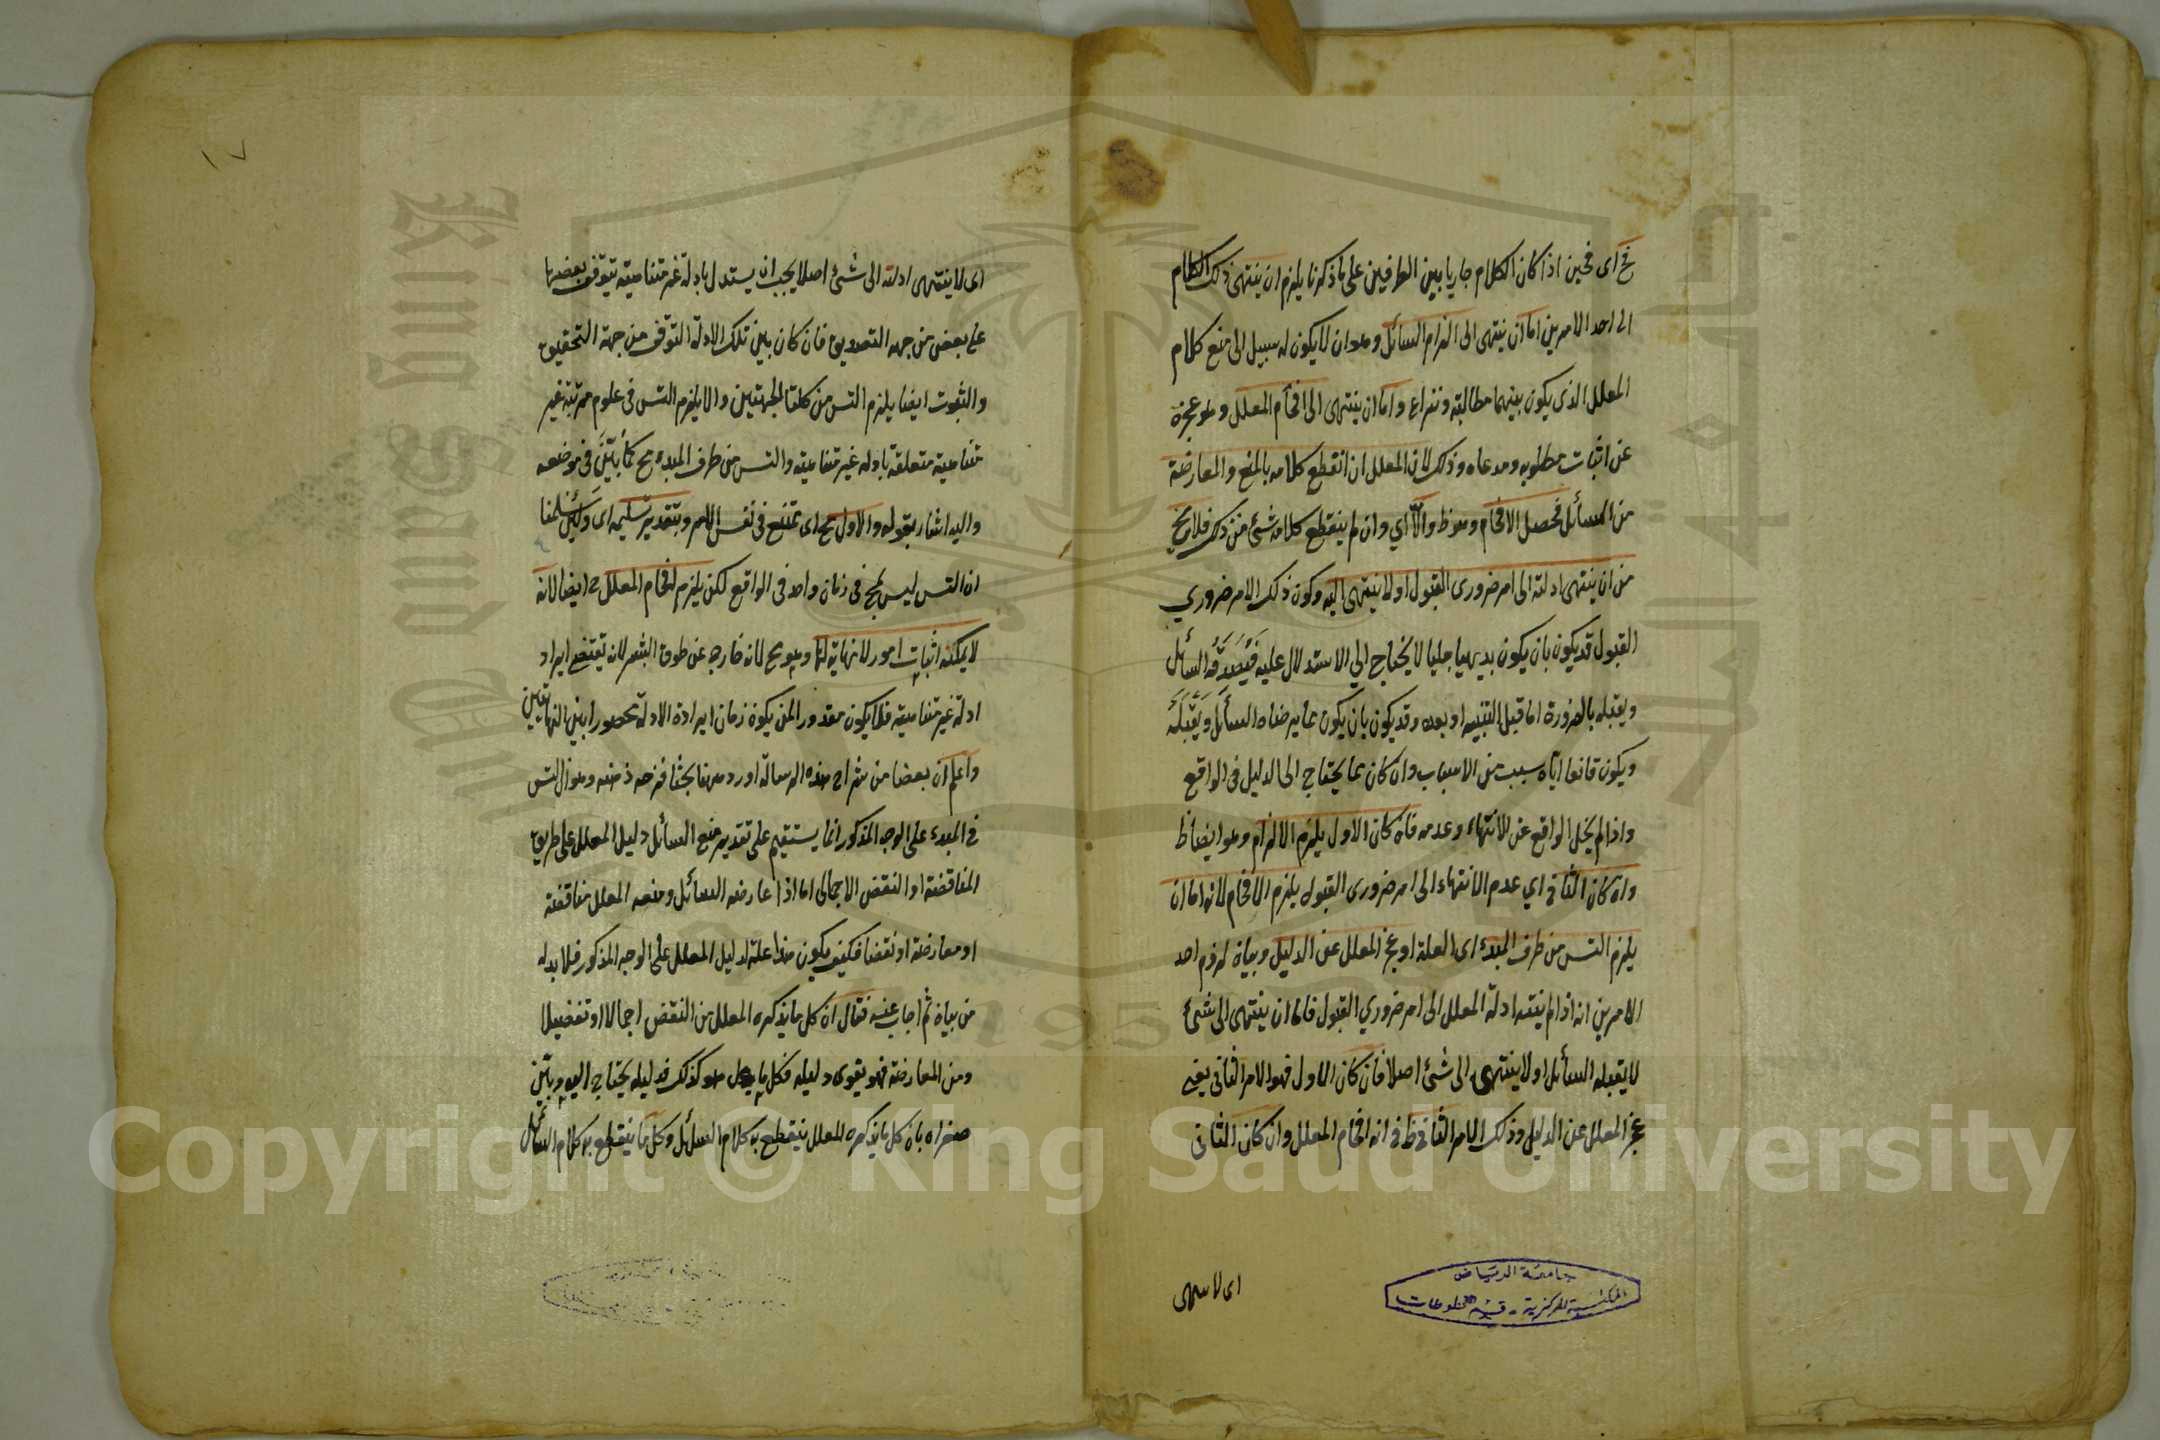 فح اى فحين اذا كان الكلام جاريا بين الطرفين على ما ذكرنا يلزم ان ينتهى ذلك الكلام
الى احد الامرين اما ان ينتهى الى الزام السائل وهو ان لا يكون له سبيل الى منع كلام
المعلل الذى يكون بينهما مطالبة ونزاع واما ان ينتهى الى افحام المعلل وهو عجزه
عن اثبات مطلوبه ومدعاه وذلك لان المعلل ان انقطع كلامه بالمنع والمعارضة
من السائل فحصل الافحام وهو ظ والا اي وان لم ينقطع كلامه شئ من ذلك فلا يخ
من ان ينتهى ادلته الى امر ضرورى القبول او لا ينتهى اليه وكون ذلك الامر ضروري
القبول قد يكون بان يكون بديهيا جليا لا يحتاج الي الاستدلال عليه فيصدقه السائل
ويقبله بالضرورة اما قبل التنبيه او بعده وقد يكون بان يكون مما يرضاه السائل ويقبله
ويكون قانعا اياه سبب من الاسباب وان كان مما يحتاج الى الدليل فى الواقع
واذا لم يخل الواقع عن الانتهاء وعدمه فان كان الاول يلزم الالزام وهو ايضا ظ
وان كان الثانى اي عدم الانتهاء الى امر ضرورى القبول يلزم الافحام لانه اما ان
يلزم التس من طرف المبدء اى العلة او عجز المعلل عن الدليل وبيان لزوم احد
الامرين انه اذا لم ينته ادلة المعلل الى امر ضروري القبول فاما ان ينتهى الى شئ
لا يقبله السائل او لا ينتهى الى شئ اصلا فان كان الاول فهو الامر الثانى يعنى
عجز المعلل عن الدليل وذلك الامر الثانى ظ فى انه افحام المعلل وان كان الثانى
اى لا ينتهى
جامعة الرياض
المكتبة المركزية - قسم المخطوطات
١٧
اى لا ينتهى ادلته الى شئ اصلا يجب ان يستدل بادلة غير متناهية يتوقف بعضها
على بعض من جهه التصديق فان كان بين تلك الادلة التوقف من جهة التحقيق
والثبوت ايضا يلزم التس من كلتا الجهتين والا يلزم التس فى علوم مرتبة غير
متناهية متعلقة بادلة غير متناهية والتس من طرف المبدء مح كما بين فى موضعه
واليه اشار بقوله والاول مح اى ممتنع فى نفس الامر وبتقدير تسليمه اى ولئن سلمنا
ان التس ليس بمح فى زمان واحد فى الواقع لكن يلزم افحام المعلل ايضا لانه
لا يمكنه اثبات امور لا نهاية لها وهو مح لانه خارج عن طوق البشر لانه يقتضى ايراد
ادلة غير متناهية فلا يكون مقدورا لمن يكون زمان ايراده الادلة محصورا بين النهايتين
واعلم ان بعضا من شراح هذه الرسالة اورد ههنا بحثا من ذهنه وهو ان التس
فى المبدء على الوجه المذكور انما يستقيم على تقدير منع السائل دليل المعلل على طريق
المناقضة او النقض الاجمالى اما اذا عارضه السائل ومنعه المعلل مناقضة
او معارضة او نقضا فكيف يكون هذا علة لدليل المعلل على الوجه المذكور فلا بد له
من بيان ثم اجاب عنه فقال ان كل ما يذكره المعلل من النقض اجمالا او تفصيلا
ومن المعارضة فهو يقوى دليله فكل ما هو كذلك فدليله يحتاج اليه وبين
صغراه بان كل ما يذكره المعلل ينقطع به كلام السائل وكل ما ينقطع به كلام السائل
Copyright © King Saud University
King Saud University
1957